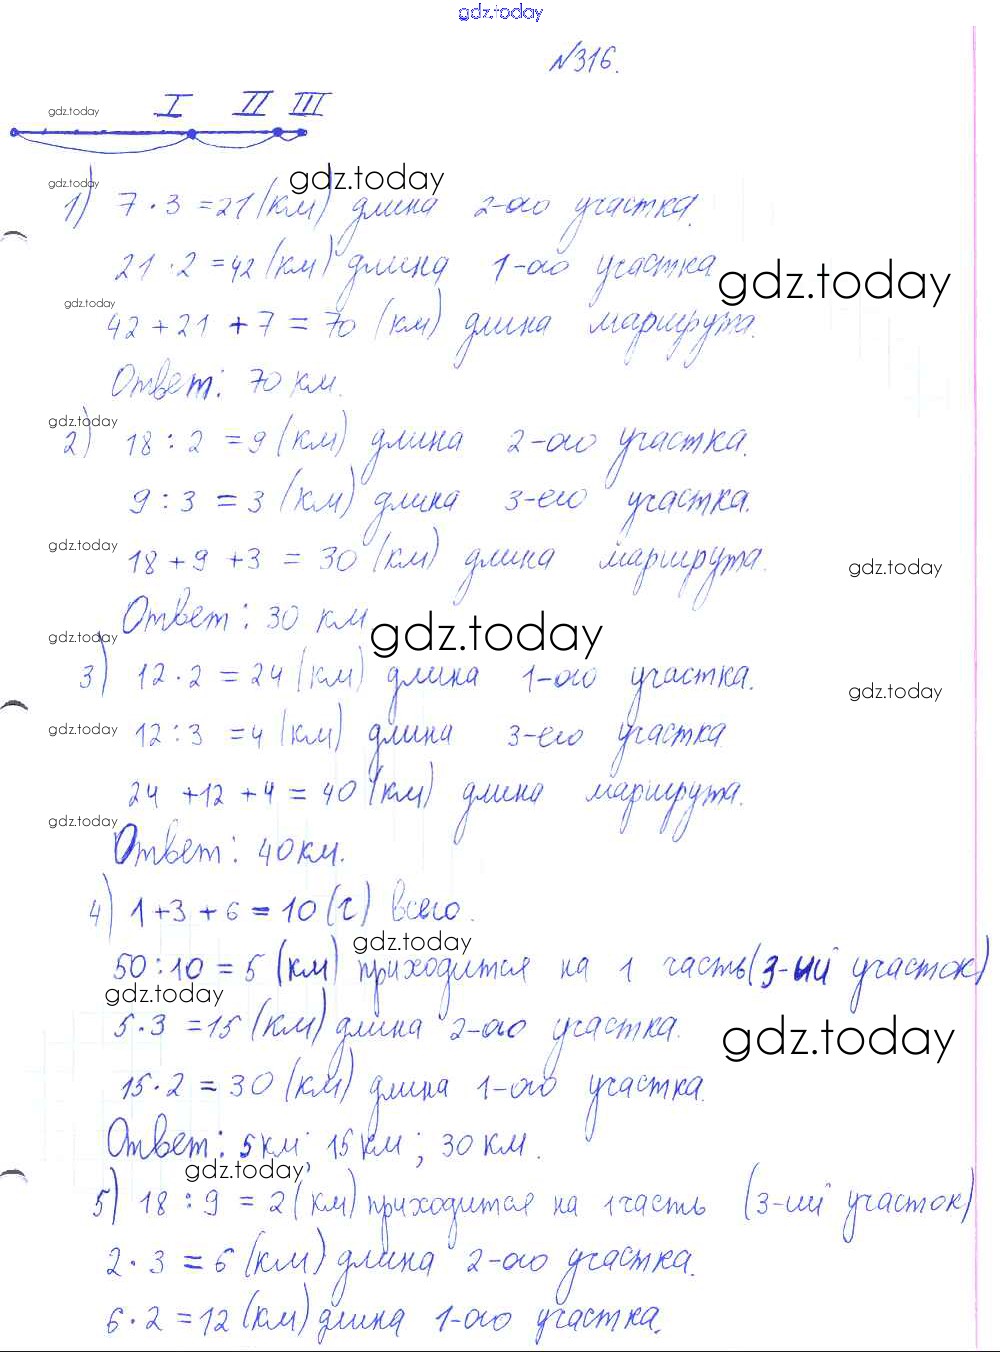 gdz.today
№316.
gdz.today I II III
gdz.today gdz.today
1) 7 · 3 = 21 (км) длина 2-ого участка.
21 · 2 = 42 (км) длина 1-ого участка
gdz.today
gdz.today
42 + 21 + 7 = 70 (км) длина маршрута.
Ответ: 70 км.
gdz.today
2) 18 : 2 = 9 (км) длина 2-ого участка.
9 : 3 = 3 (км) длина 3-его участка.
gdz.today
18 + 9 + 3 = 30 (км) длина маршрута.
gdz.today
Ответ: 30 км
gdz.today
gdz.today
3) 12 · 2 = 24 (км) длина 1-ого участка.
gdz.today
gdz.today
12 : 3 = 4 (км) длина 3-его участка
24 + 12 + 4 = 40 (км) длина маршрута.
gdz.today
Ответ: 40 км.
4) 1 + 3 + 6 = 10 (г) всего.
gdz.today
50 : 10 = 5 (км) приходится на 1 часть (3-ий участок)
gdz.today
5 · 3 = 15 (км) длина 2-ого участка.
gdz.today
15 · 2 = 30 (км) длина 1-ого участка.
Ответ: 5 км; 15 км; 30 км.
gdz.today
5) 18 : 9 = 2 (км) приходится на 1 часть (3-ий участок)
2 · 3 = 6 (км) длина 2-ого участка.
6 · 2 = 12 (км) длина 1-ого участка.